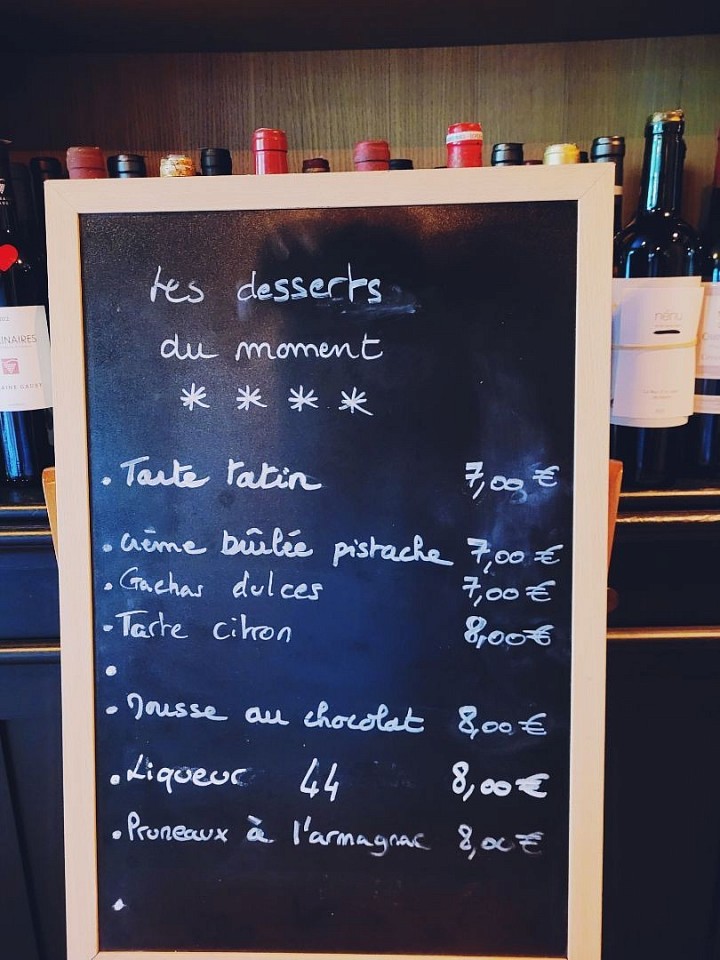 Les desserts
du moment
* * * *
. Tarte tatin 7,00 €
. crème brûlée pistache 7,00 €
. Gachas dulces 7,00 €
- Tarte citron 8,00 €
.
. Mousse au chocolat 8,00 €
. Liqueur 44 8,00 €
. Pruneaux à l'armagnac 8,00 €
.
INAIRES
nenu